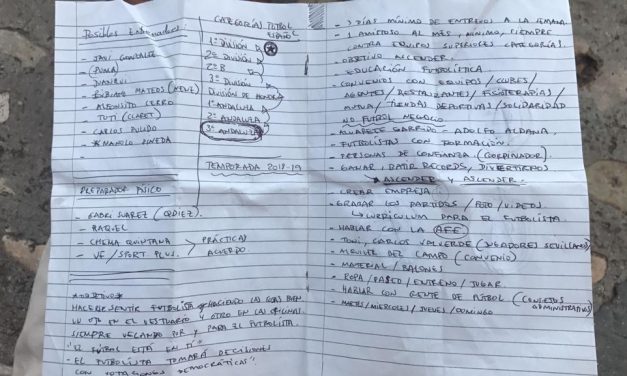 Posibles Entrenadores:
- Javi Gonzalez
(Puma)
- Juanjo
- Mateos (Meme)
- Alfonsito Cerro
- Tuti (Claret)
- Carlos Pulido
* Manolo Pineda
Preparador Físico
- Kadri Suarez (Cádiz).
- Raquel
- Chema Quintana
- VF/Sport Plus.
> Prácticas
Acuerdo
* Objetivo *
Hacer sentir futbolista haciendo las cosas bien
en el vestuario y otro en las oficinas
siempre velando por y para el futbolista.
"El fútbol está en ti"
- El futbolista tomará decisiones
con votaciones democráticas".
Categorías Fútbol
Español
1ª División
2ª División
2ª B
3ª División
División de Honor
1ª Andaluza
2ª Andaluza
3ª Andaluza
Temporada 2018-19
- 3 días mínimo de entreno a la semana.
- 1 amistoso al mes, mínimo, siempre
contra equipos superiores categorías.
- Objetivo ascender.
- Educación futbolística
- Convenios con equipos/clubes/
agentes/restaurantes/fisioterapias/
mutua/tiendas deportivas/solidaridad
No fútbol negocio
- Garrido - Adolfo Aldana.
- Futbolistas con formación.
- Personas de confianza. (Coordinador).
- Ganar, batir records, divertirnos
Ascender y ascender.
- Crear empresa.
- Grabar los partidos/foto/videos
↳ Curriculum para el futbolista.
- Hablar con la AFE
- Toni, Carlos Valverde (Jugadores Sevillanos)
- Alquiler del campo (convenio)
- Material/balones
- Ropa/paseo/entreno/jugar.
- Hablar con gente de fútbol (consejos
administrativos)
- Martes/Miercoles/Jueves/Domingo